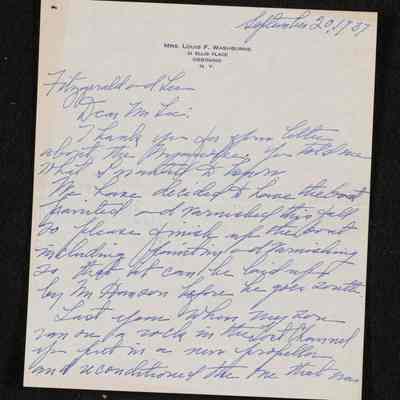 September 20, 1937
MRS. LOUIS F. WASHBURNE
31 ELLIS PLACE
OSSINING
N. Y.
Fitzgerald and Lee
Dear Mr Lee:
Thank you for your letter
about the You told me
what I wanted to know
We have decided to have the boat
painted and varnished this fall
so please finish up the boat
including painting and varnishing
so that it can be laid up
by Mr Hanson before he goes south.
Last year when my son
ran on a rock in the Channel
you put in a new propeller
and reconditioned the one that was